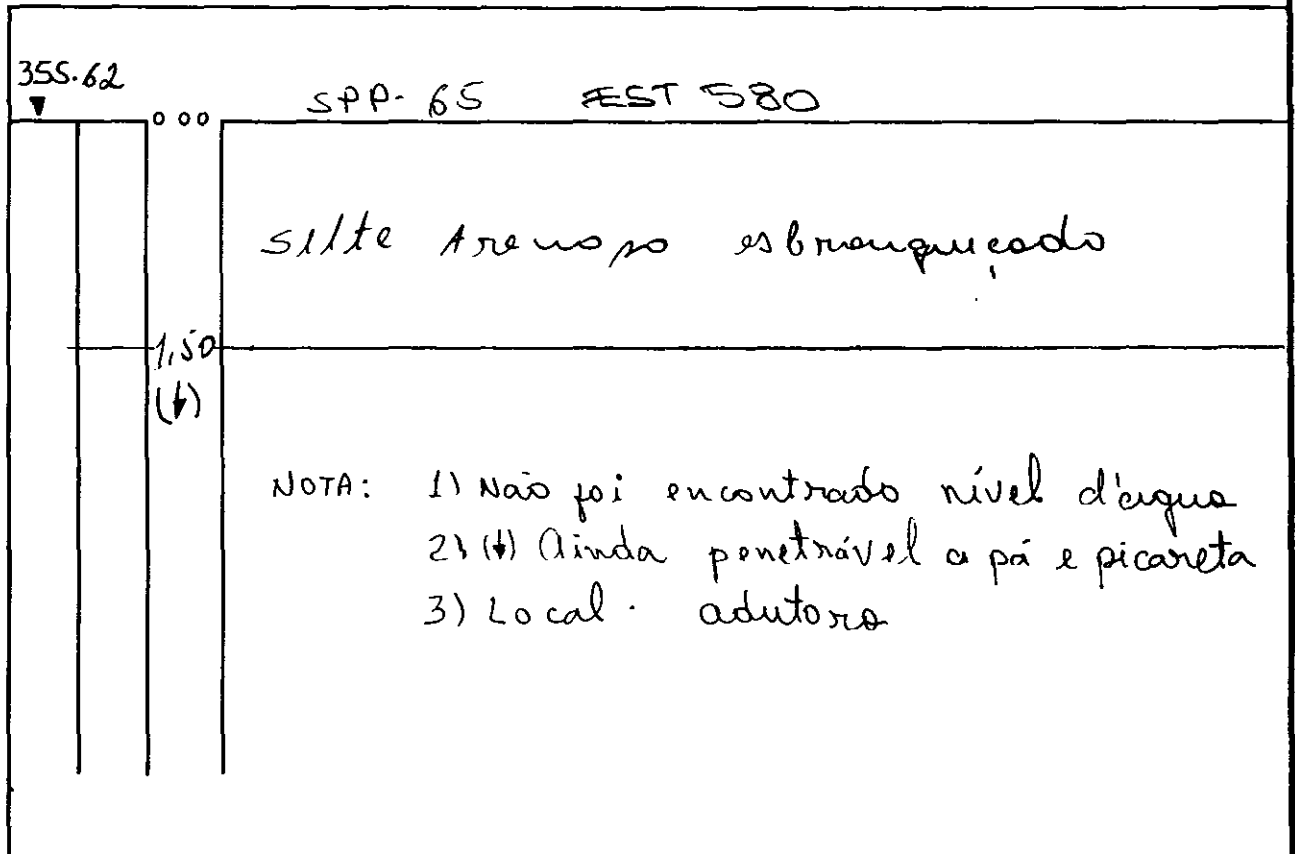 355.62
SPP-65 EST 580
0 00
Silte Arenoso esbranquiçado
1,50
(↓)
NOTA: 1) Não foi encontrado nível d'água
2) (↓) Ainda penetrável a pá e picareta
3) Local. adutora